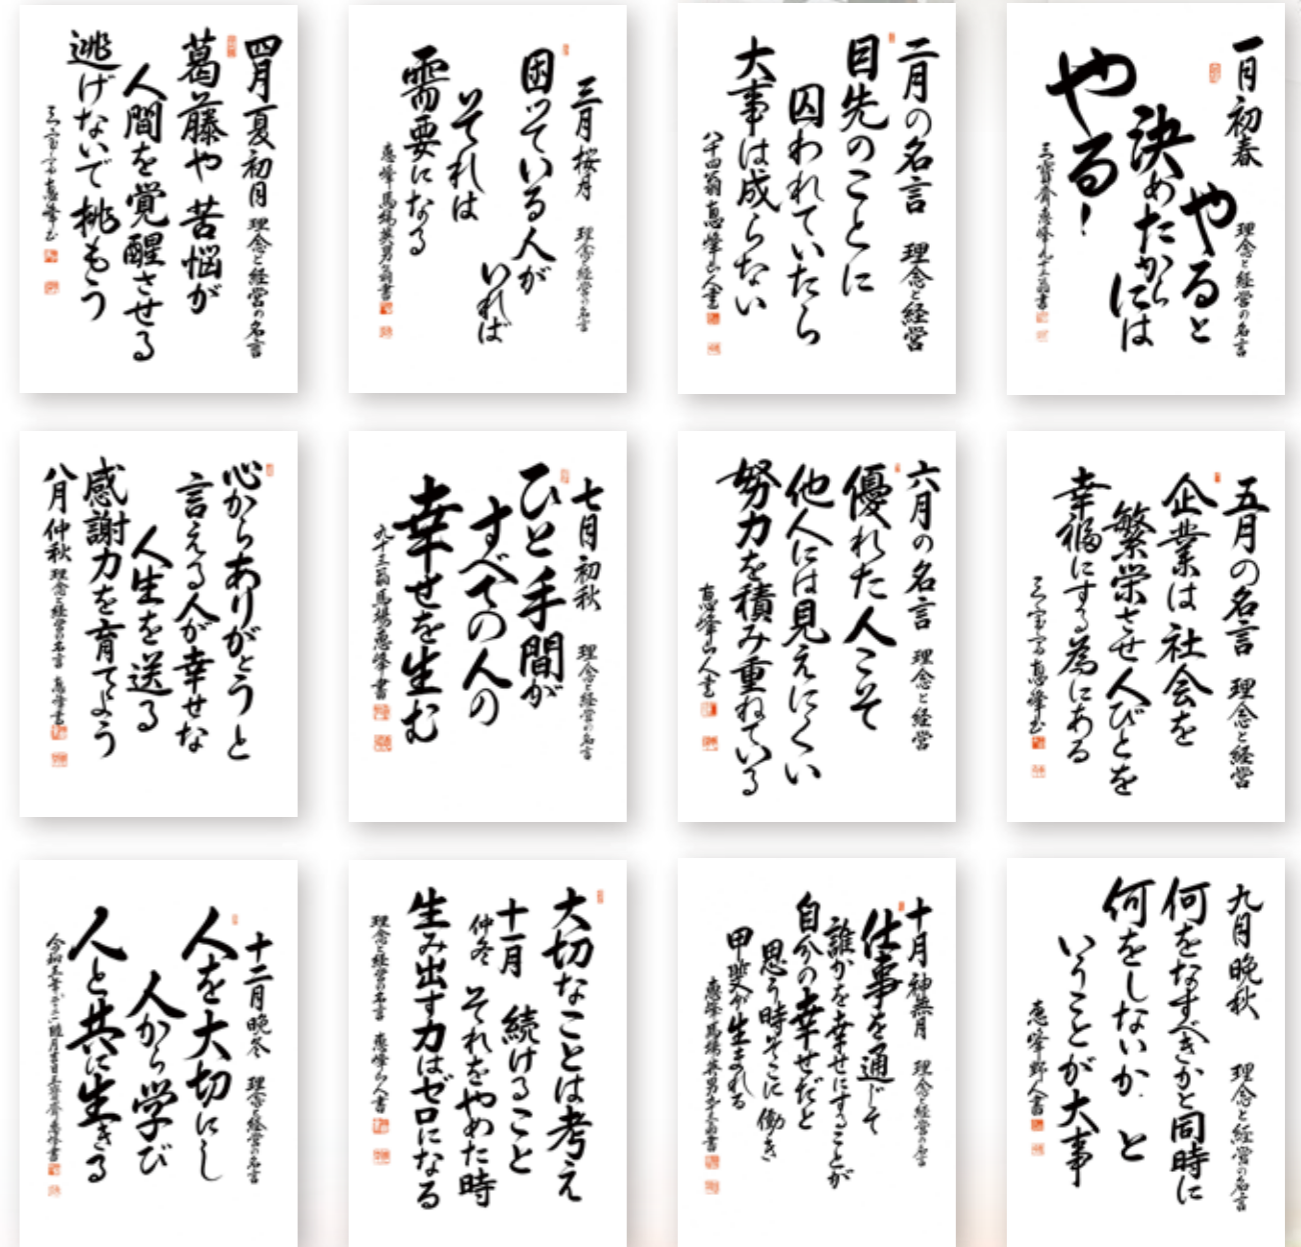 一月 初春
理念と経営の名言
やると
決めたからには
やる!
二月の名言 理念と経営
目先のことに
囚われていたら
大事は成らない
八十四翁 恵峰山人書
三月 桜月
理念と経営の名言
困っている人が
いれば
それは
需要になる
恵峰 馬場英男翁書
四月 夏初月 理念と経営の名言
葛藤や 苦悩が
人間を覚醒させる
逃げないで挑もう
五月の名言 理念と経営
企業は 社会を
繁栄させ 人びとを
幸福にする為にある
六月の名言 理念と経営
優れた人こそ
他人には見えにくい
努力を積み重ねている
恵峰山人書
七月 初秋 理念と経営の名言
ひと手間が
すべての人の
幸せを生む
九十三翁 馬場恵峰書
心からありがとうと
言える人が幸せな
人生を送る
感謝力を育てよう
八月 仲秋 理念と経営の名言 恵峰書
九月 晩秋 理念と経営の名言
何をなすべきかと同時に
何をしないか と
いうことが大事
恵峰野人書
十月 神無月 理念と経営の名言
仕事を通じて
誰かを幸せにすることが
自分の幸せだと
思う時そこに 働き
甲斐が生まれる
大切なことは考え
十一月 続けること
仲冬 それをやめた時
生み出す力はゼロになる
理念と経営の名言 恵峰山人書
十二月 晩冬 理念と経営の名言
人を大切にし
人から学び
人と共に生きる